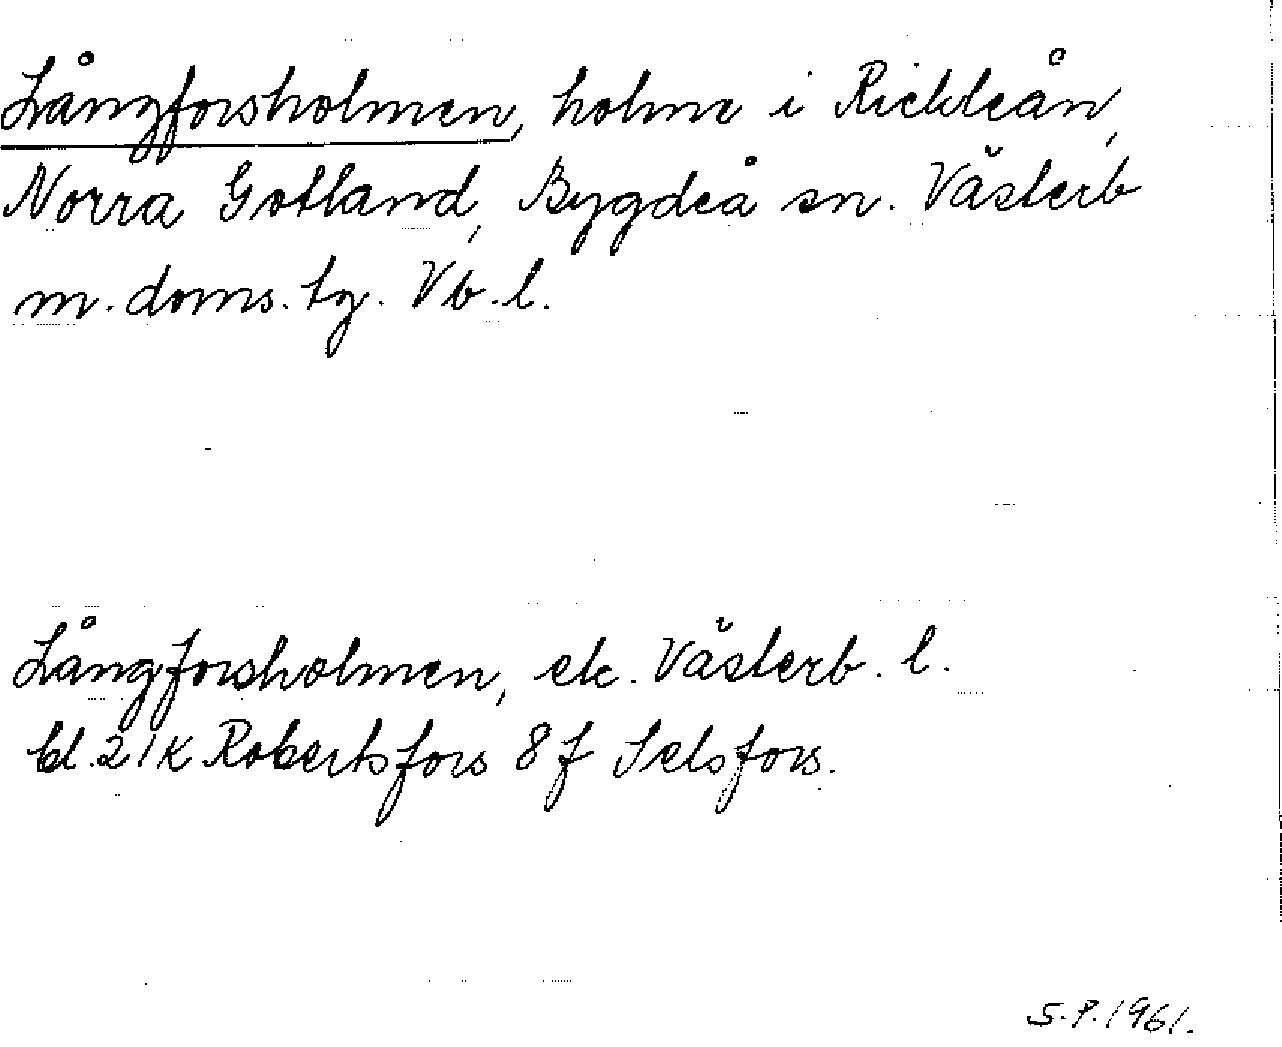 Långforsholmen, holme i Rickleån,
Norra Gotland, Bygdeå sn. Västerb
m. doms. tg. Vb. l.
Långforsholmen, ek. Västerb. l.
bl. 21K Robertsfors 8f Selsfors.
S.P. 1961.